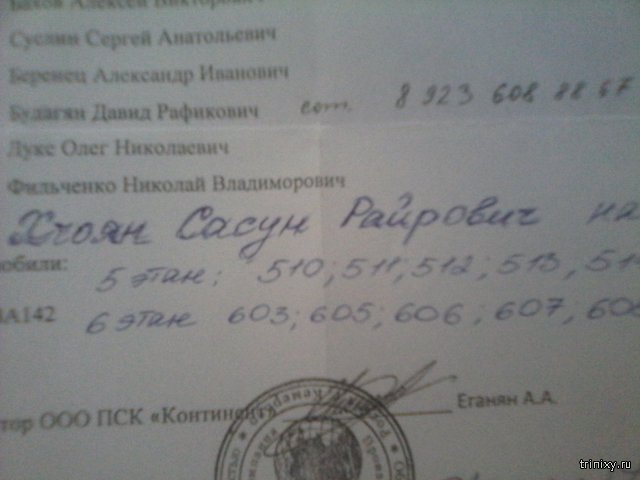 Бахов Алексей Викторович
Суслин Сергей Анатольевич
Беренец Александр Иванович
Булагян Давид Рафикович сот. 8 923 608 88 67
Луке Олег Николаевич
Фильченко Николай Владиморович
Хчоян Сасун Райрович на
обили:
5 этаж; 510; 511; 512; 513, 51
НА142
6 этаж 603; 605; 606; 607, 608
тор ООО ПСК «Континент» Еганян А.А.
trinixy.ru